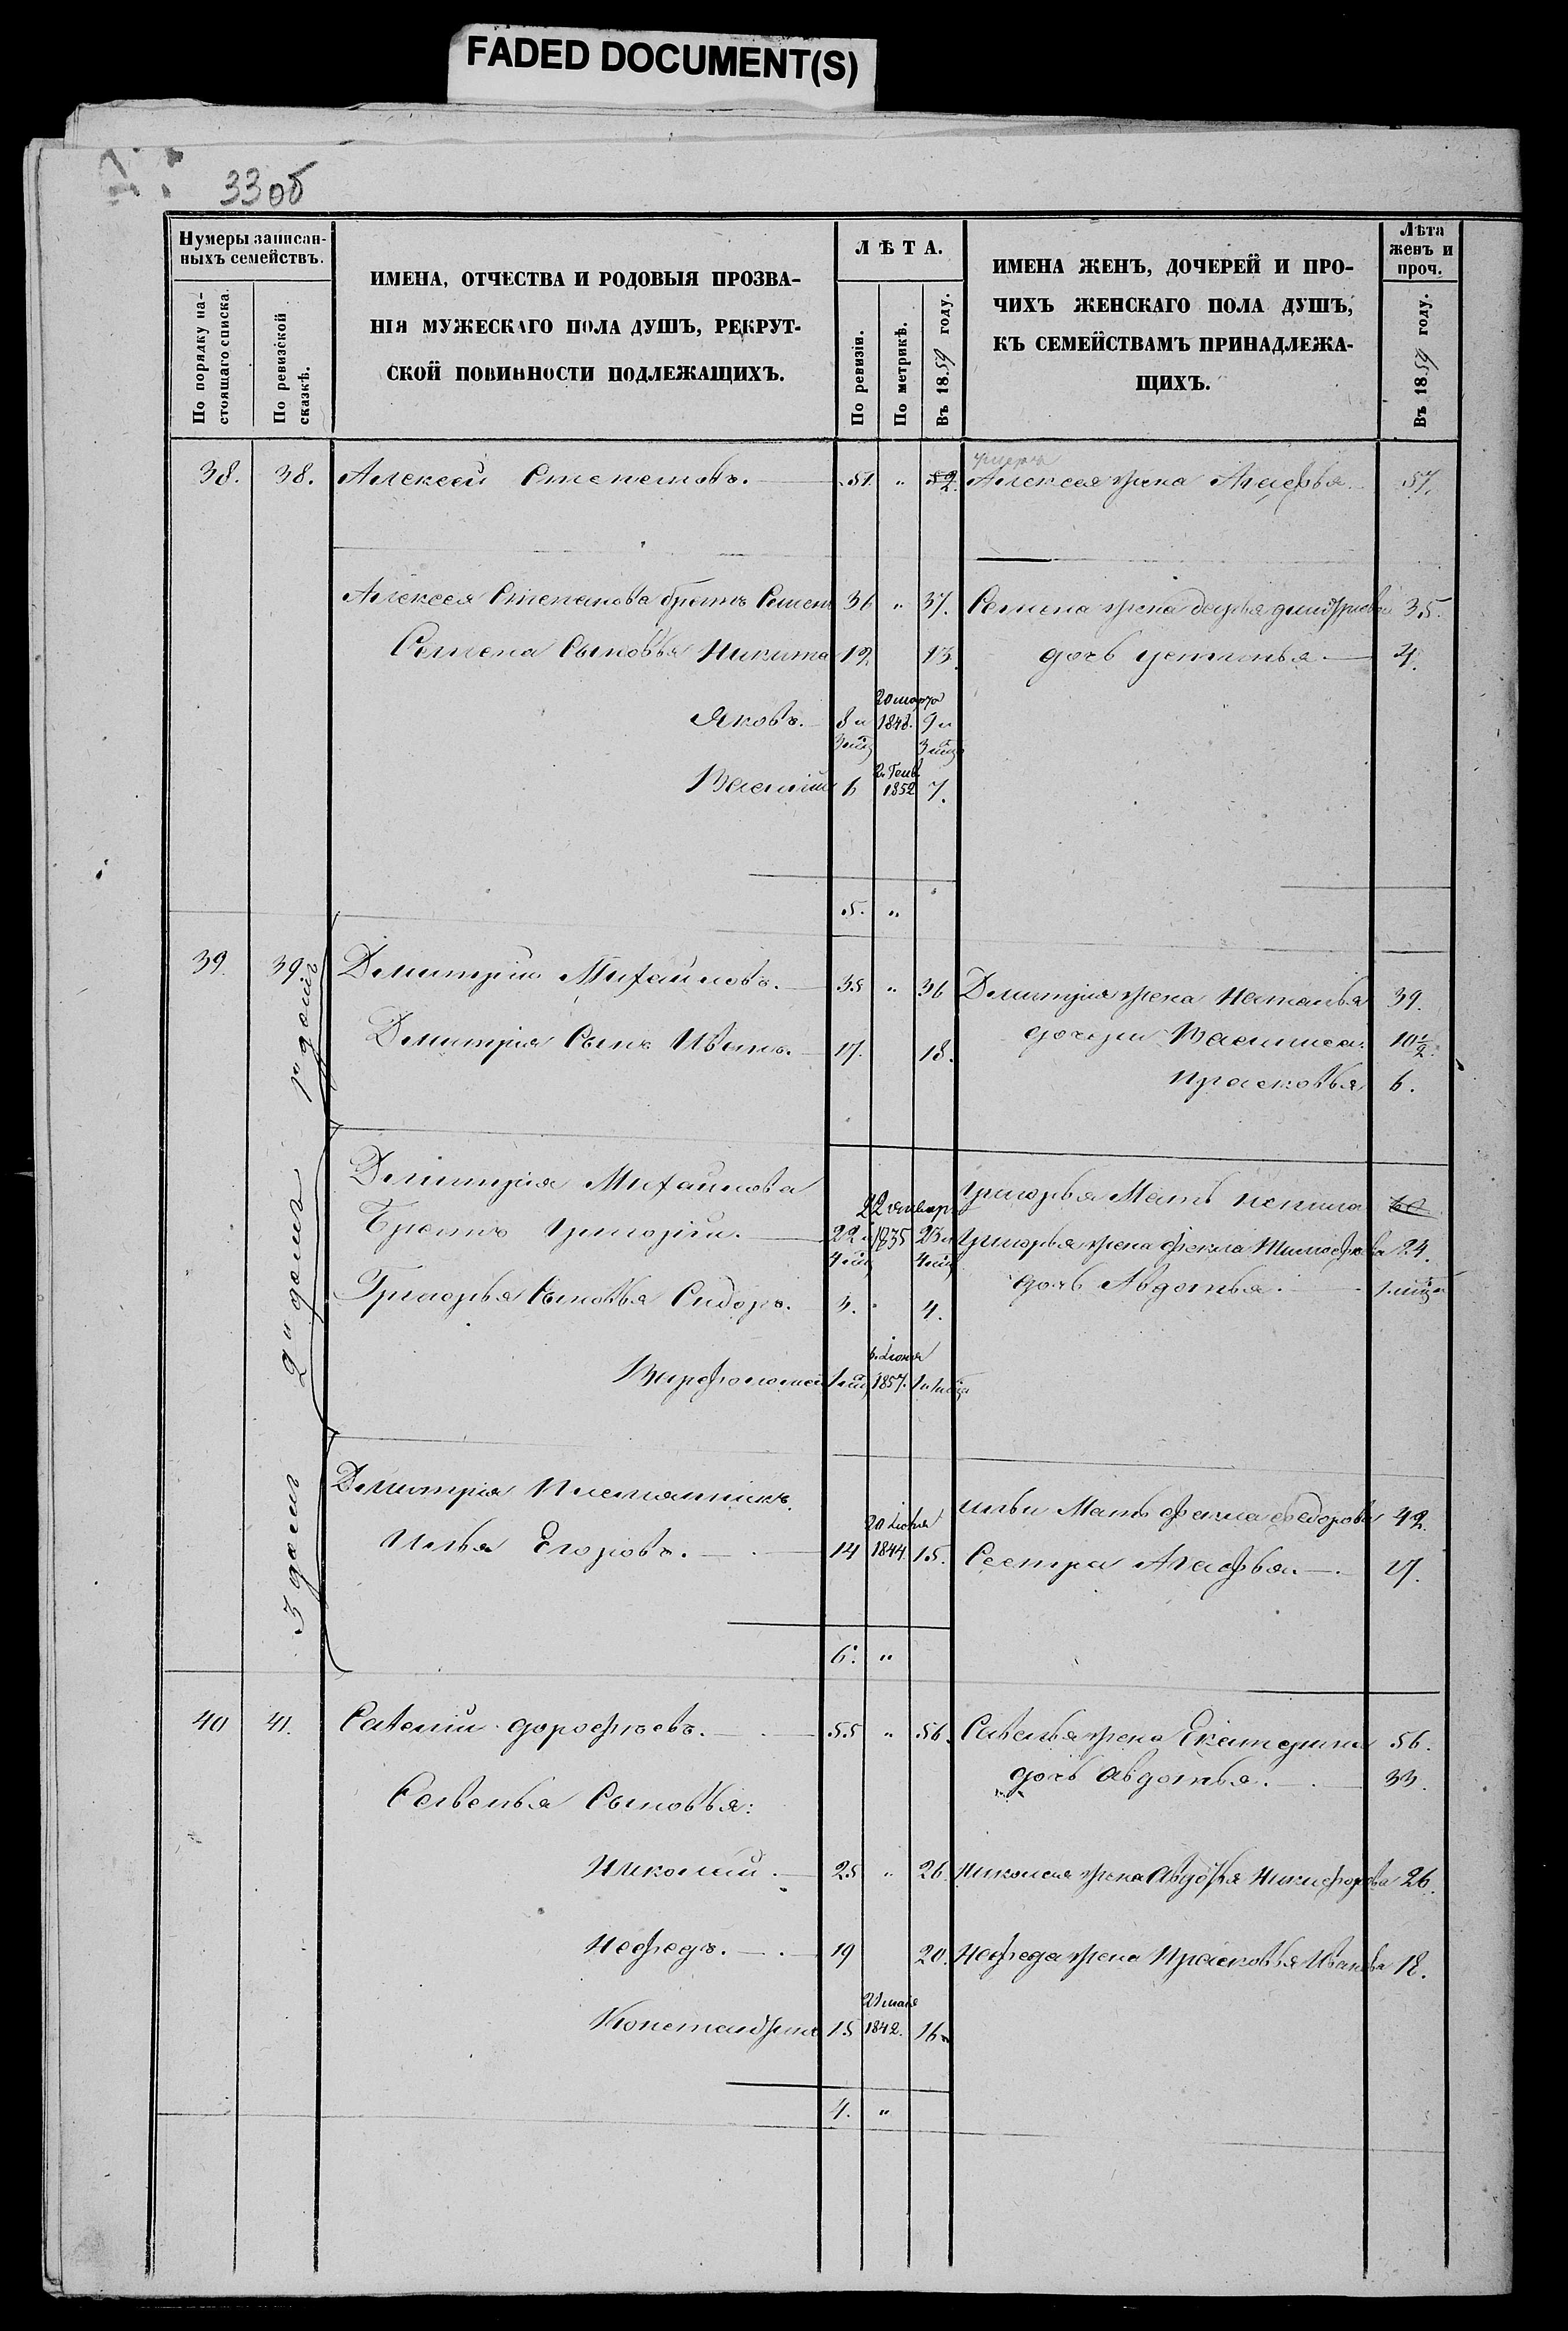 FADED DOCUMENT(S)
33 об
Нумеры записан-
ныхъ семействъ.
По порядку на-
стоящаго списка.
По ревизской
сказкѣ.
ИМЕНА, ОТЧЕСТВА И РОДОВЫЯ ПРОЗВА-
НІЯ МУЖЕСКАГО ПОЛА ДУШЪ, РЕКРУТ-
СКОЙ ПОВИННОСТИ ПОДЛЕЖАЩИХЪ.
ЛѢТА.
По ревизіи.
По метрикѣ.
Въ 1859 году.
ИМЕНА ЖЕНЪ, ДОЧЕРЕЙ И ПРО-
ЧИХЪ ЖЕНСКАГО ПОЛА ДУШЪ,
КЪ СЕМЕЙСТВАМЪ ПРИНАДЛЕЖА-
ЩИХЪ.
Лѣта
женъ и
проч.
Въ 1859 году.
умеръ
38. 38. Алексей Степановъ. 51. " 52. Алексея жена Агафья 57.
Алексея Степанова братъ Семенъ 36 " 37. Семена жена Дарья Дмитриева 35.
Семена Сыновья Никита 12. 13. дочь Устинья 4.
20 марта
Яковъ. 8 и 1848. 9 и
3 мѣс 3 мѣс
2. Генв.
Василій 6 1852 7.
5. "
39. 39. Дмитрій Михайловъ. 35 " 36 Дмитрія жена Наталья 39.
1й домъ
Дмитрія Сынъ Иванъ. 17. 18. дочери Василиса. 10 1/2.
Прасковья 6.
2й домъ
Дмитрія Михайлова Григорья Мать 60
22 января
Братъ Григорій. 22 и 1835 23 и Григорья жена Фекла Тимофеева 24.
4 мѣс 4 мѣс
Григорья Сыновья Сидоръ. 3. " 4. дочь Авдотья. 1 мѣся
6. Іюня
Варфоломей 1 мѣс 1857. 1 и 1 мѣся
3 домъ
Дмитрія Племянникъ Ильи Мать Фекла Федорова 42.
20 Іюля
Илья Егоровъ. 14 1844. 15. Сестра Агафья. 17.
6. "
40 41. Савелій Дорофѣевъ. 55 " 56. Савелья жена Екатерина 56.
дочь Авдотья. 33.
Савелья Сыновья:
Николай. 25 " 26. Николая жена Авдотья Никифорова 26.
Нефедъ. 19 20. Нефеда жена Прасковья Иванова 18.
21 мая
Константинъ 15 1842. 16
4. "